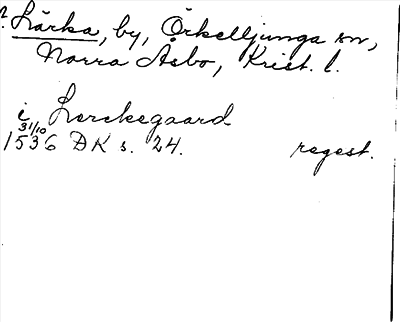 ? Lärka, by, Örkelljunga sn,
Norra Åsbo, Krist. l.
i Lerckegaard
31/10
1536 DK s. 24. regest.